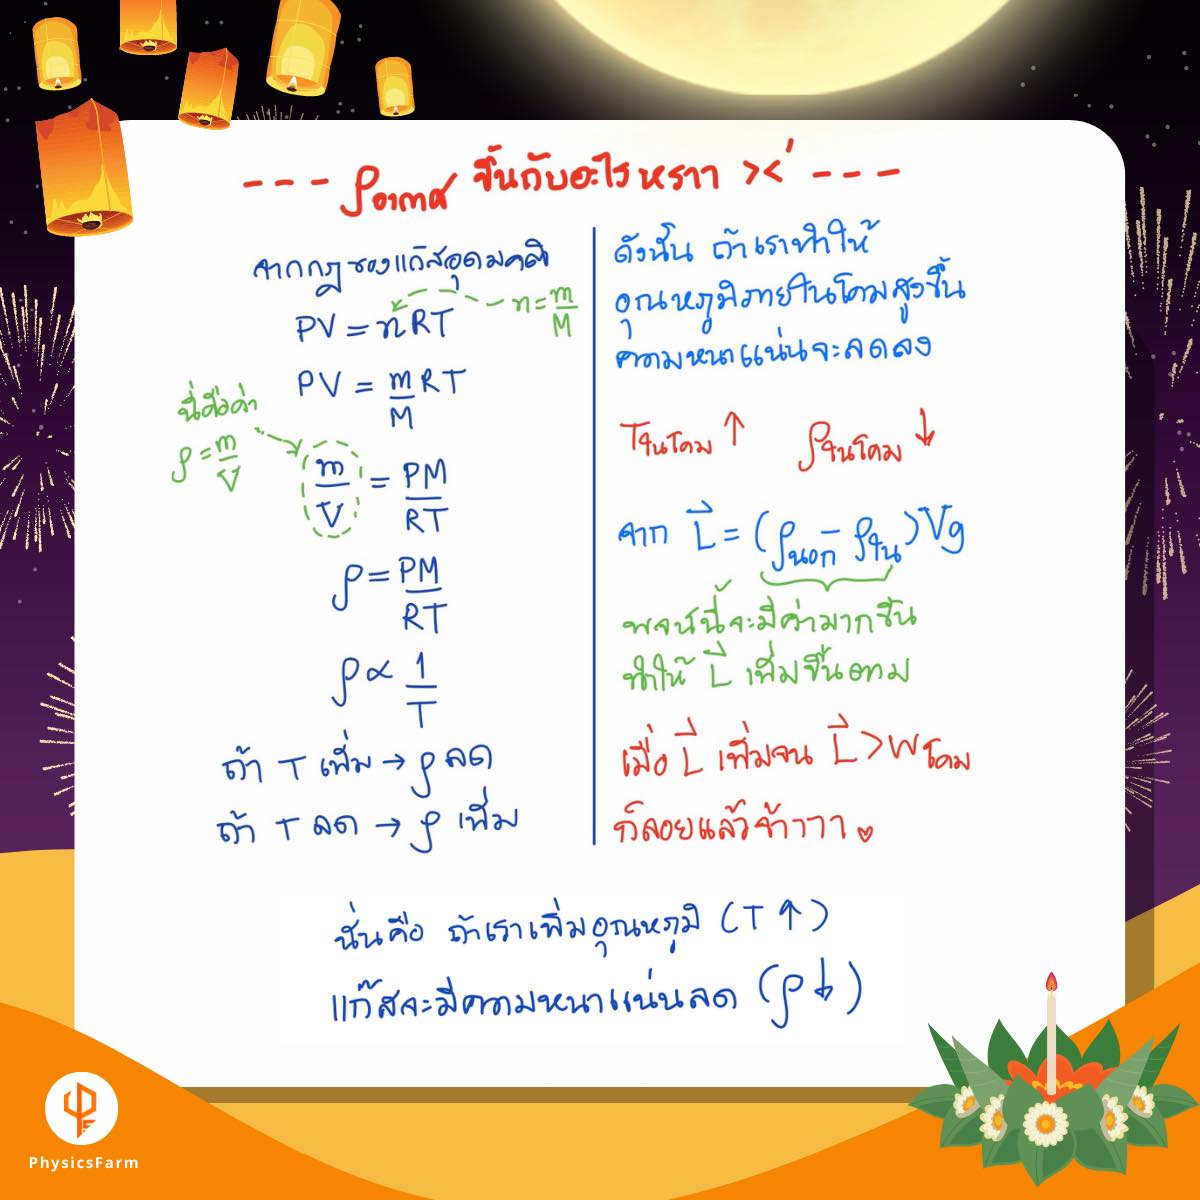 --- ρอากาศ ขึ้นกับอะไรหราา ><' ---
จากกฎของแก๊สอุดมคติ
PV = nRT
n = m/M
PV = m/M RT
นี่คือค่า
ρ = m/V
m/V = PM/RT
ρ = PM/RT
ρ ∝ 1/T
ถ้า T เพิ่ม → ρ ลด
ถ้า T ลด → ρ เพิ่ม
ดังนั้น ถ้าเราทำให้
อุณหภูมิภายในโคมสูงขึ้น
ความหนาแน่นจะลดลง
Tในโคม ↑ ρในโคม ↓
จาก L⃗ = (ρนอก - ρใน)Vg
พจน์นี้จะมีค่ามากขึ้น
ทำให้ L⃗ เพิ่มขึ้นตาม
เมื่อ L⃗ เพิ่มจน L⃗ > Wโคม
ก็ลอยแล้วจ้าาาา ♥
นั่นคือ ถ้าเราเพิ่มอุณหภูมิ (T ↑)
แก๊สจะมีความหนาแน่นลด (ρ ↓)
PhysicsFarm